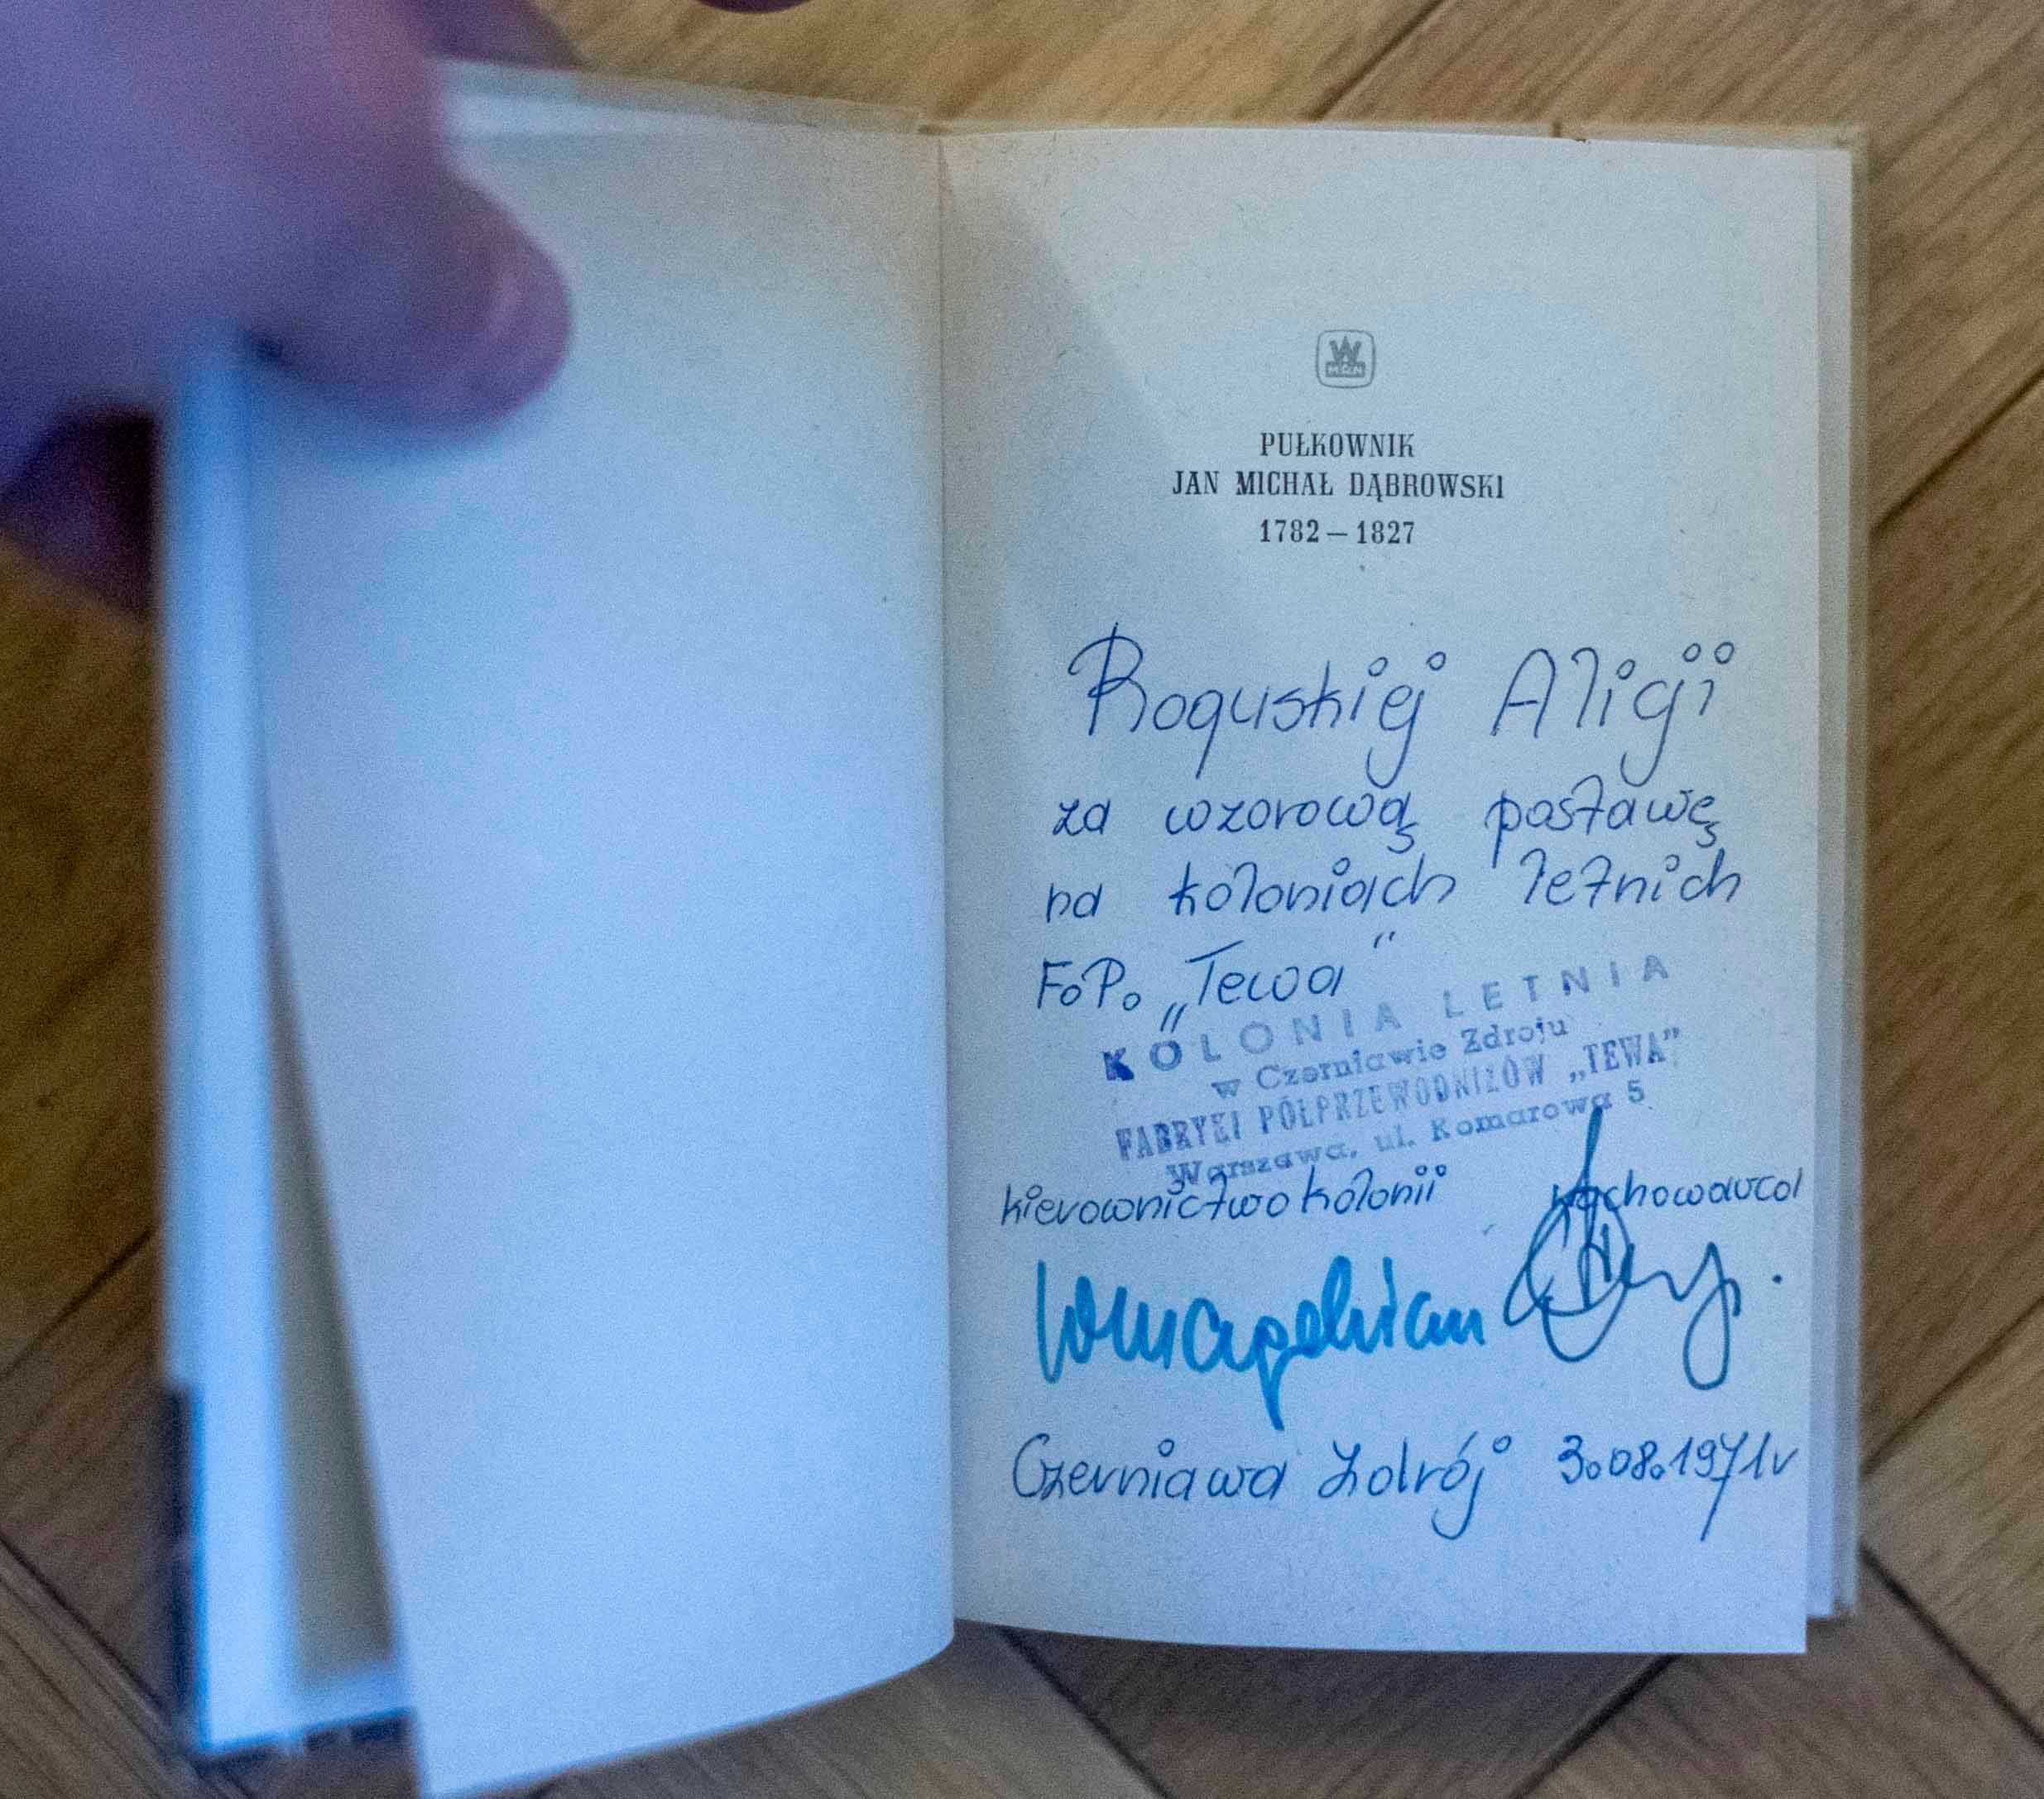 W
MON
PUŁKOWNIK
JAN MICHAŁ DĄBROWSKI
1782 — 1827
Roguskiej Alicji
za wzorową postawę
na koloniach letnich
F.P. „Tewa”
KOLONIA LETNIA
w Czerniawie Zdroju
FABRYKI PÓŁPRZEWODNIKÓW „TEWA”
Warszawa, ul. Komarowa 5
kierownictwo kolonii wychowawca
Czerniawa Zdrój 3.08.1971r